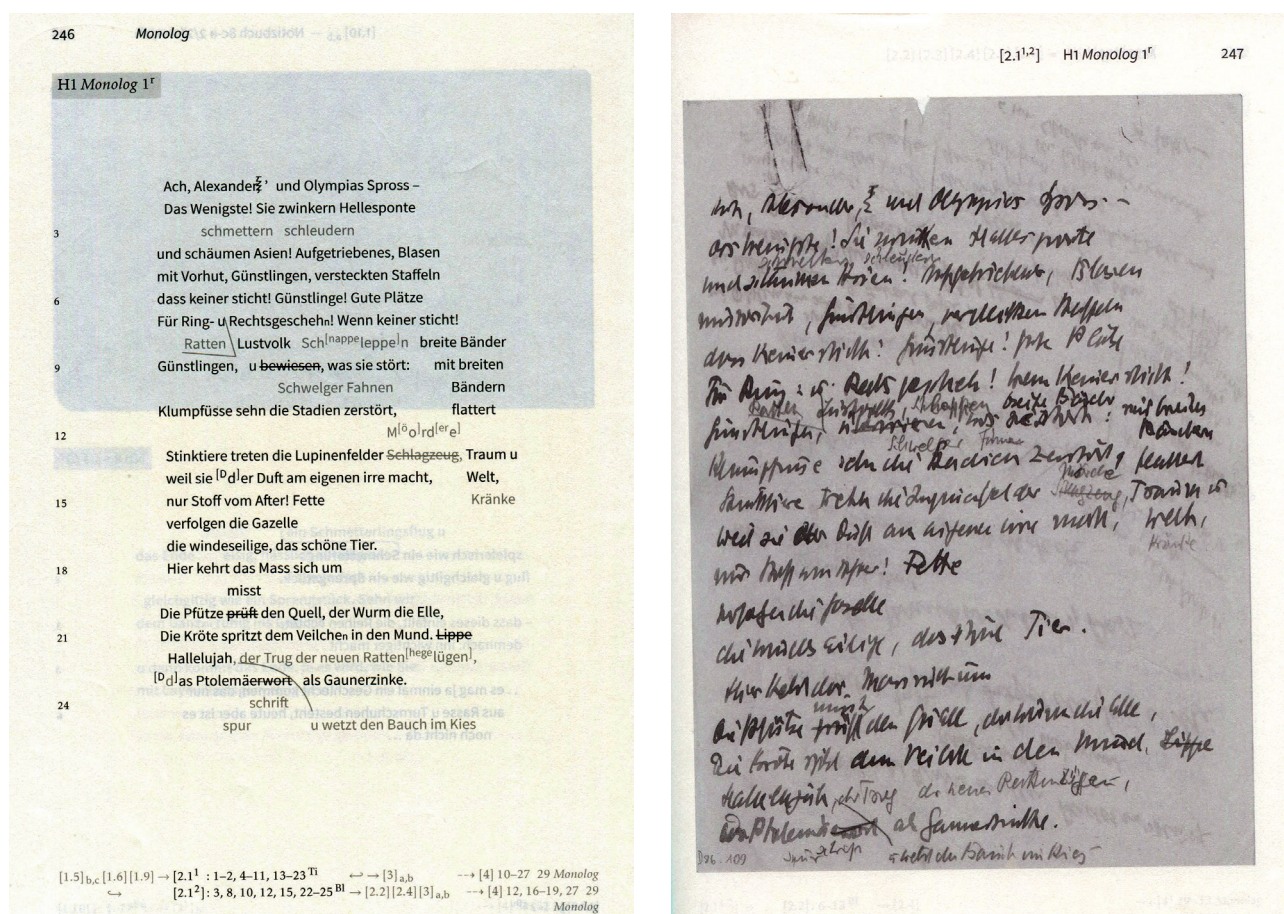 246 Monolog
H1 Monolog 1r
Ach, Alexanderz’ und Olympias Spross –
Das Wenigste! Sie zwinkern Hellesponte
schmettern schleudern
3
und schäumen Asien! Aufgetriebenes, Blasen
mit Vorhut, Günstlingen, versteckten Staffeln
6 dass keiner sticht! Günstlinge! Gute Plätze
Für Ring- u Rechtsgeschehn! Wenn keiner sticht!
Ratten Lustvolk Sch[nappe|eppe]n breite Bänder
9 Günstlingen, u bewiesen, was sie stört: mit breiten
Schwelger Fahnen Bändern
Klumpfüsse sehn die Stadien zerstört, flattert
12 M[ö|o]rd[er|e]
Stinktiere treten die Lupinenfelder Schlagzeug, Traum u
weil sie [D|d]er Duft am eigenen irre macht, Welt,
15 nur Stoff vom After! Fette Kränke
verfolgen die Gazelle
die windeseilige, das schöne Tier.
18 Hier kehrt das Mass sich um
misst
Die Pfütze prüft den Quell, der Wurm die Elle,
21 Die Kröte spritzt dem Veilchen in den Mund. Lippe
Hallelujah, der Trug der neuen Ratten[hege|lügen],
[D|d]as Ptolemäerwort als Gaunerzinke.
24 schrift
spur u wetzt den Bauch im Kies
[1.5]b,c [1.6] [1.9] → [2.1¹ : 1–2, 4–11, 13–23 Ti ↩ → [3]a,b ⤏ [4] 10–27 29 Monolog
↪ [2.1²]: 3, 8, 10, 12, 15, 22–25 Bl → [2.2] [2.4] [3]a,b ⤏ [4] 12, 16–19, 27 29
Monolog
[2.1¹,²] H1 Monolog 1r 247
Ach, Alexander, z und Olympias Spross –
Das Wenigste! Sie zwinkern Hellesponte
schmettern schleudern
und schäumen Asien! Aufgetriebenes, Blasen
mit Vorhut, Günstlingen, versteckten Staffeln
dass keiner sticht! Günstlinge! Gute Plätze
Für Ring- u Rechtsgeschehn! Wenn keiner sticht!
Ratten Lustvolk, breite Bänder
Günstlingen, u bewiesen, was sie stört: mit breiten
Schwelger Fahnen Bändern
Klumpfüsse sehn die Stadien zerstört, flattert
Stinktiere treten die Lupinenfelder Schlagzeug, Traum u
weil sie der Duft am eigenen irre macht, Welt,
Kränke
nur Stoff vom After! Fette
verfolgen die Gazelle
die windeseilige, das schöne Tier.
Hier kehrt das Mass sich um
misst
Die Pfütze prüft den Quell, der Wurm die Elle,
Die Kröte spritzt dem Veilchen in den Mund. Lippe
Hallelujah, der Trug der neuen Rattenlügen,
das Ptolemäerwort als Gaunerzinke.
spur schrift u wetzt den Bauch im Kies
D86.109